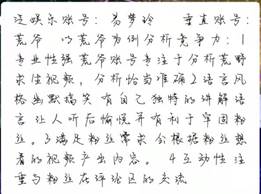 泛娱乐账号：为梦吟 垂直账号：
荒爷 以荒爷为例分析竞争力：1
专业性强荒爷专注于分析荒野
求生视频，分析恰当准确2语言风
格幽默搞笑有自己独特的讲解语
言让人听后愉悦并有利于牢固粉
丝。3满足粉丝需求会根据粉丝想
看的视频产出内容。4互动性注
重与粉丝在评论区的交流